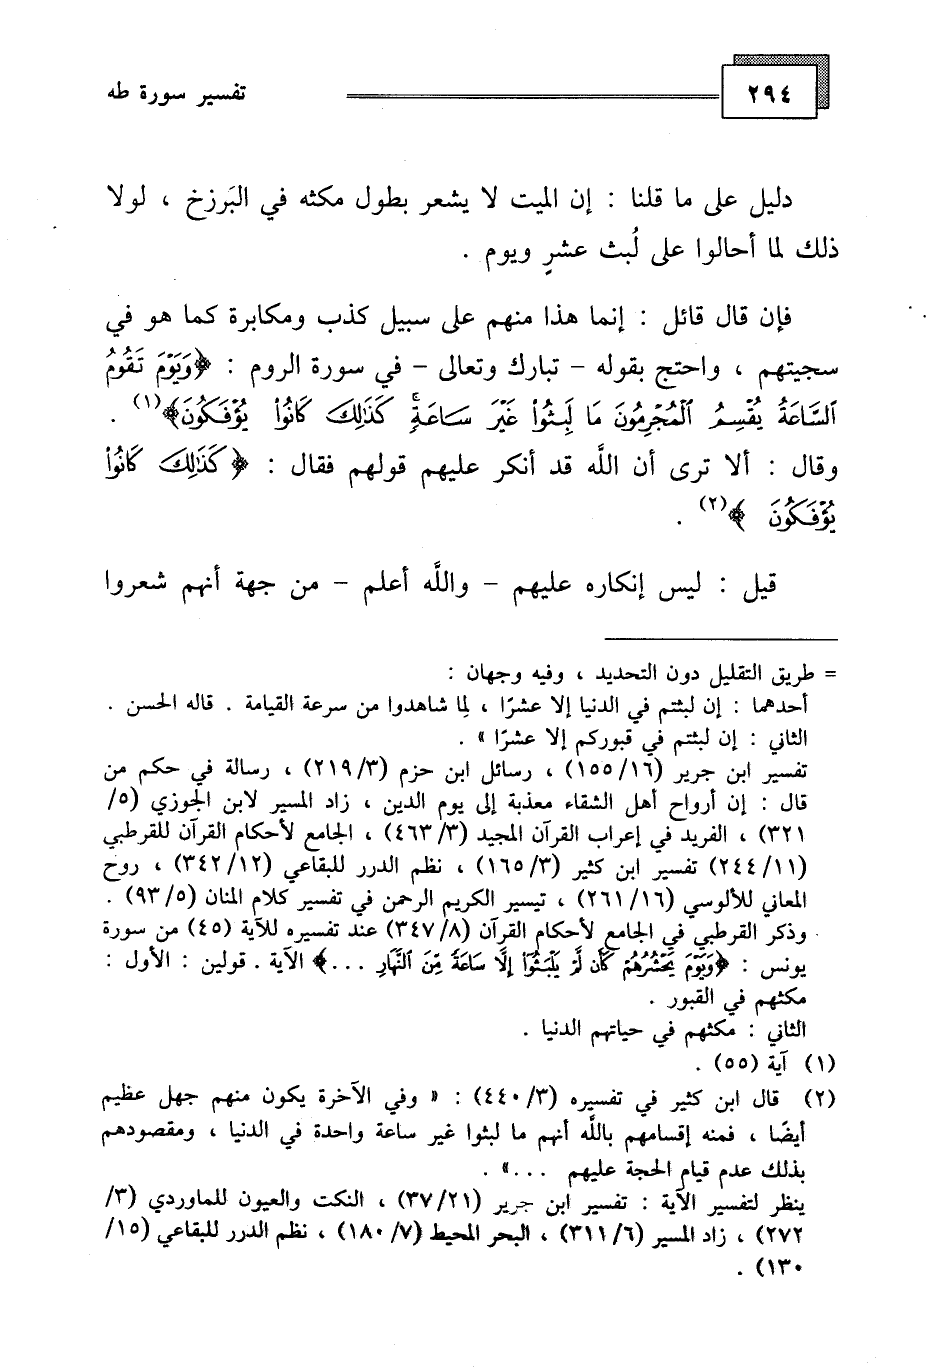 ٢٩٤
تفسير سورة طه
دليل على ما قلنا : إن الميت لا يشعر بطول مكثه في البَرزخ ، لولا
ذلك لما أحالوا على لُبث عشرٍ ويوم .
فإن قال قائل : إنما هذا منهم على سبيل كذب ومكابرة كما هو في
سجيتهم ، واحتج بقوله – تبارك وتعالى – في سورة الروم : ﴿وَيَوْمَ تَقُومُ
ٱلسَّاعَةُ يُقْسِمُ ٱلْمُجْرِمُونَ مَا لَبِثُوا۟ غَيْرَ سَاعَةٍۚ كَذَٰلِكَ كَانُوا۟ يُؤْفَكُونَ﴾(١) .
وقال : ألا ترى أن اللَّه قد أنكر عليهم قولهم فقال : ﴿ كَذَٰلِكَ كَانُوا۟
يُؤْفَكُونَ ﴾(٢) .
قيل : ليس إنكاره عليهم – واللَّه أعلم – من جهة أنهم شعروا
= طريق التقليل دون التحديد ، وفيه وجهان :
أحدهما : إن لبثتم في الدنيا إلا عشرًا ، لِما شاهدوا من سرعة القيامة . قاله الحسن .
الثاني : إن لبثتم في قبوركم إلا عشرًا » .
تفسير ابن جرير (١٥٥/١٦) ، رسائل ابن حزم (٢١٩/٣) ، رسالة في حكم من
قال : إن أرواح أهل الشقاء معذبة إلى يوم الدين ، زاد المسير لابن الجوزي (٥/
٣٢١) ، الفريد في إعراب القرآن المجيد (٤٦٣/٣) ، الجامع لأحكام القرآن للقرطبي
(٢٤٤/١١) تفسير ابن كثير (١٦٥/٣) ، نظم الدرر للبقاعي (٣٤٢/١٢) ، روح
المعاني للألوسي (٢٦١/١٦) ، تيسير الكريم الرحمن في تفسير كلام المنان (٩٣/٥) .
وذكر القرطبي في الجامع لأحكام القرآن (٣٤٧/٨) عند تفسيره للآية (٤٥) من سورة
يونس : ﴿وَيَوْمَ يَحْشُرُهُمْ كَأَن لَّمْ يَلْبَثُوٓا۟ إِلَّا سَاعَةً مِّنَ ٱلنَّهَارِ ...﴾ الآية . قولين : الأول :
مكثهم في القبور .
الثاني : مكثهم في حياتهم الدنيا .
(١) آية (٥٥) .
(٢) قال ابن كثير في تفسيره (٤٤٠/٣) : « وفي الآخرة يكون منهم جهل عظيم
أيضًا ، فمنه إقسامهم باللَّه أنهم ما لبثوا غير ساعة واحدة في الدنيا ، ومقصودهم
بذلك عدم قيام الحجة عليهم ...» .
ينظر لتفسير الآية : تفسير ابن جرير (٣٧/٢١) ، النكت والعيون للماوردي (٣/
٢٧٢) ، زاد المسير (٣١١/٦) ، البحر المحيط (١٨٠/٧) ، نظم الدرر للبقاعي (١٥/
١٣٠) .